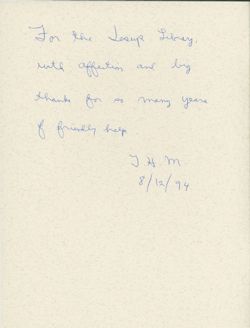 For the Jesup Library,
with affection and big
thanks for so many years
of friendly help
T H. M
8/12/94